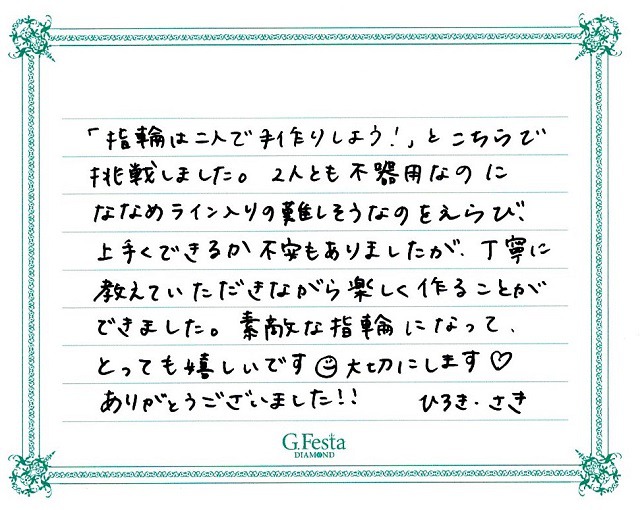 「指輪は二人で手作りしよう!」とこちらで
挑戦しました。2人とも不器用なのに
ななめライン入りの難しそうなのをえらび、
上手くできるか不安もありましたが、丁寧に
教えていただきながら楽しく作ることが
できました。素敵な指輪になって、
とっても嬉しいです☺大切にします♡
ありがとうございました!!　ひろき・さき
G.Festa
DIAMOND